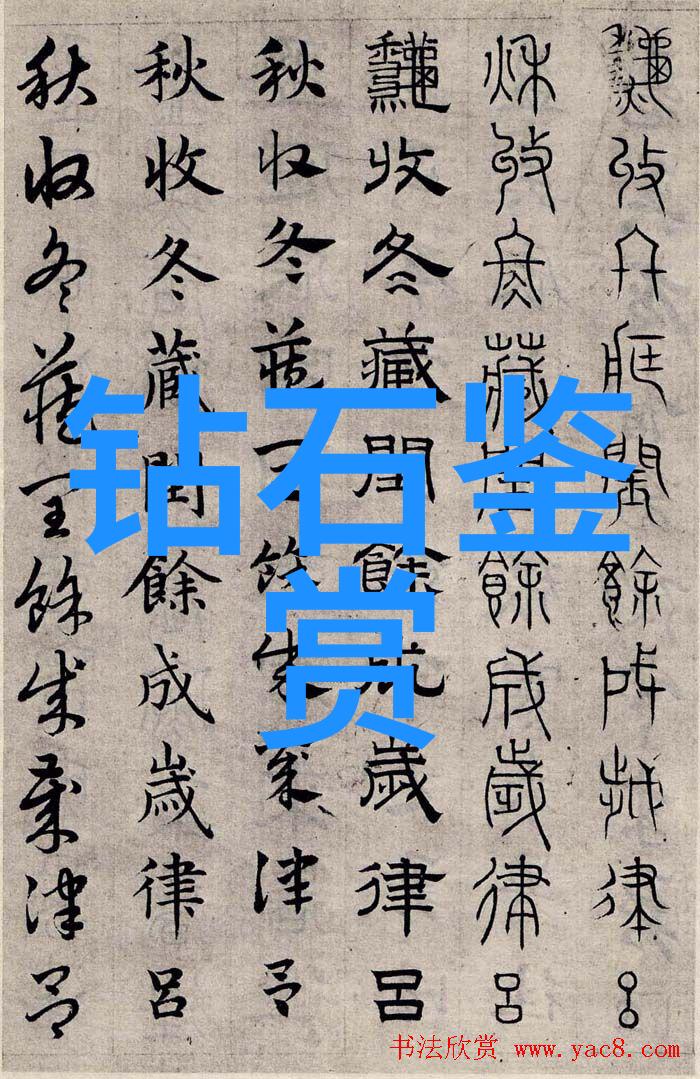 龝收冬藏閏餘成歲律呂
秌收冬藏閏餘成歲律呂
龝收冬藏閏餘成歲律呂
秋收冬藏閏餘成歲律呂
秋收冬藏閏餘成歲律呂
秋收冬藏閏餘成歲律呂
钻石鉴
赏
书法欣赏 www.yac8.com